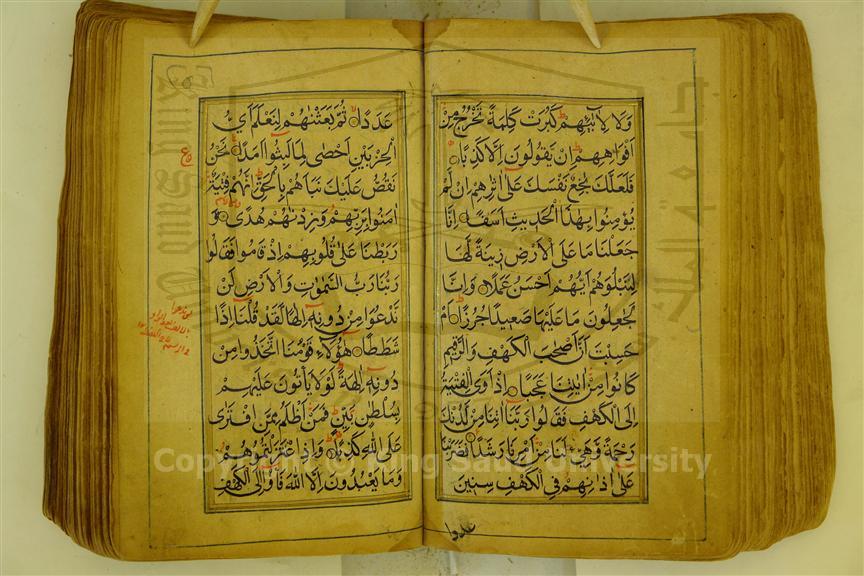 وَلَا لِاٰبَآئِهِمْ كَبُرَتْ كَلِمَةً تَخْرُجُ مِنْ
اَفْوَاهِهِمْ اِنْ يَقُوْلُوْنَ اِلَّا كَذِبًا
فَلَعَلَّكَ بَاخِعٌ نَفْسَكَ عَلٰى اٰثَارِهِمْ اِنْ لَمْ
يُؤْمِنُوْا بِهٰذَا الْحَدِيْثِ اَسَفًا اِنَّا
جَعَلْنَا مَا عَلَى الْاَرْضِ زِيْنَةً لَهَا
لِنَبْلُوَهُمْ اَيُّهُمْ اَحْسَنُ عَمَلًا وَاِنَّا
لَجٰعِلُوْنَ مَا عَلَيْهَا صَعِيْدًا جُرُزًا اَمْ
حَسِبْتَ اَنَّ اَصْحٰبَ الْكَهْفِ وَالرَّقِيْمِ
كَانُوْا مِنْ اٰيٰتِنَا عَجَبًا اِذْ اَوَى الْفِتْيَةُ
اِلَى الْكَهْفِ فَقَالُوْا رَبَّنَا اٰتِنَا مِنْ لَدُنْكَ
رَحْمَةً وَهَيِّئْ لَنَا مِنْ اَمْرِنَا رَشَدًا فَضَرَبْنَا
عَلٰى اٰذَانِهِمْ فِى الْكَهْفِ سِنِيْنَ
عددا
عَدَدًا ثُمَّ بَعَثْنٰهُمْ لِنَعْلَمَ اَيُّ
الْحِزْبَيْنِ اَحْصٰى لِمَا لَبِثُوْا اَمَدًا نَحْنُ
نَقُصُّ عَلَيْكَ نَبَاَهُمْ بِالْحَقِّ اِنَّهُمْ فِتْيَةٌ
اٰمَنُوْا بِرَبِّهِمْ وَزِدْنٰهُمْ هُدًى وَ
رَبَطْنَا عَلٰى قُلُوْبِهِمْ اِذْ قَامُوْا فَقَالُوْا
رَبُّنَا رَبُّ السَّمٰوٰتِ وَالْاَرْضِ لَنْ
نَدْعُوَا مِنْ دُوْنِهٖ اِلٰهًا لَقَدْ قُلْنَا اِذًا
شَطَطًا هٰؤُلَآءِ قَوْمُنَا اتَّخَذُوْا مِنْ
دُوْنِهٖ اٰلِهَةً لَوْلَا يَاْتُوْنَ عَلَيْهِمْ
بِسُلْطٰنٍ بَيِّنٍ فَمَنْ اَظْلَمُ مِمَّنِ افْتَرٰى
عَلَى اللهِ كَذِبًا وَاِذِ اعْتَزَلْتُمُوْهُمْ
وَمَا يَعْبُدُوْنَ اِلَّا اللهَ فَاْوٗا اِلَى الْكَهْفِ
Copyright © King Saud University